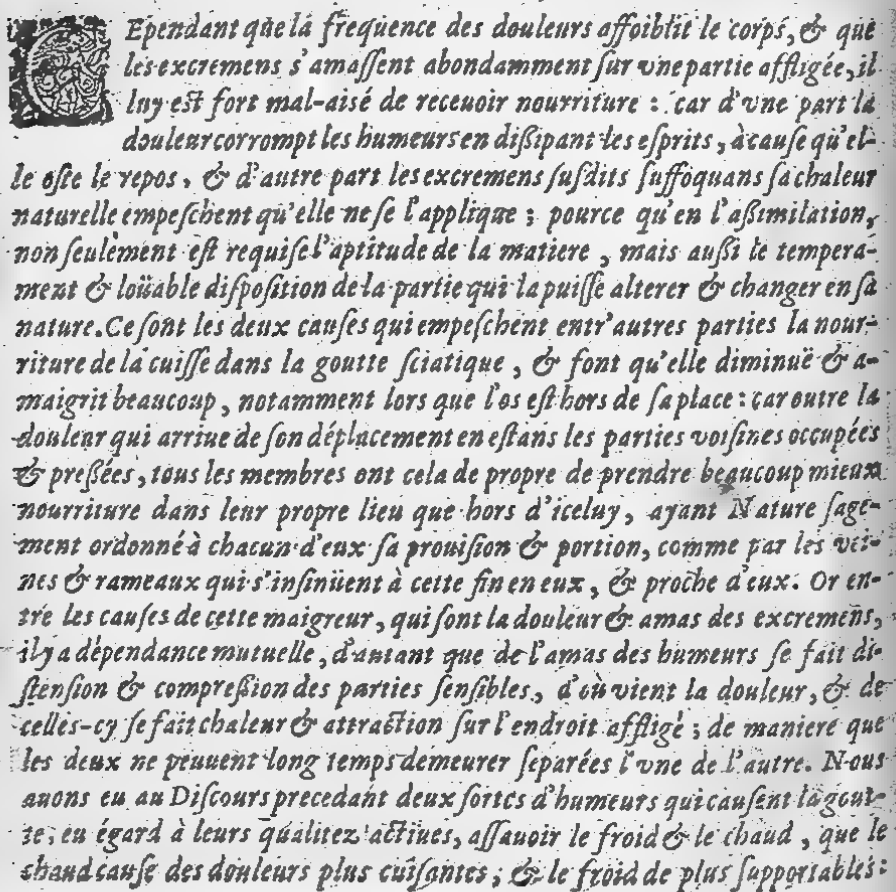 CEpendant que la frequence des douleurs affoiblit le corps, & que
les excremens s'amaſſent abondamment ſur vne partie affligée, il
luy eſt fort mal-aisé de receuoir nourriture : car d'vne part la
douleur corrompt les humeurs en diſſipant les eſprits, à cauſe qu'el-
le oſte le repos, & d'autre part les excremens ſuſdits ſuffoquans ſa chaleur
naturelle empeſchent qu'elle ne ſe l'applique ; pource qu'en l'aſſimilation,
non ſeulement eſt requiſe l'aptitude de la matiere, mais auſſi le tempera-
ment & loüable diſpoſition de la partie qui la puiſſe alterer & changer en ſa
nature. Ce ſont les deux cauſes qui empeſchent entr'autres parties la nour-
riture de la cuiſſe dans la goutte ſciatique, & font qu'elle diminuë & a-
maigrit beaucoup, notamment lors que l'os eſt hors de ſa place : car outre la
douleur qui arriue de ſon déplacement en eſtans les parties voiſines occupées
& preſſées, tous les membres ont cela de propre de prendre beaucoup mieux
nourriture dans leur propre lieu que hors d'iceluy, ayant Nature ſage-
ment ordonné à chacun d'eux ſa prouiſion & portion, comme par les vei-
nes & rameaux qui s'inſinüent à cette fin en eux, & proche d'eux. Or en-
tre les cauſes de cette maigreur, qui ſont la douleur & amas des excremens,
il y a dépendance mutuelle, d'autant que de l'amas des humeurs ſe fait di-
ſtenſion & compreſſion des parties ſenſibles, d'où vient la douleur, & de
celles-cy ſe fait chaleur & attraction ſur l'endroit affligé ; de maniere que
les deux ne peuuent long temps demeurer ſeparées l'vne de l'autre. Nous
auons eu au Diſcours precedant deux ſortes d'humeurs qui cauſent la gout-
te, eu égard à leurs qualitez actiues, aſſauoir le froid & le chaud, que le
chaud cauſe des douleurs plus cuiſantes ; & le froid de plus ſupportables :